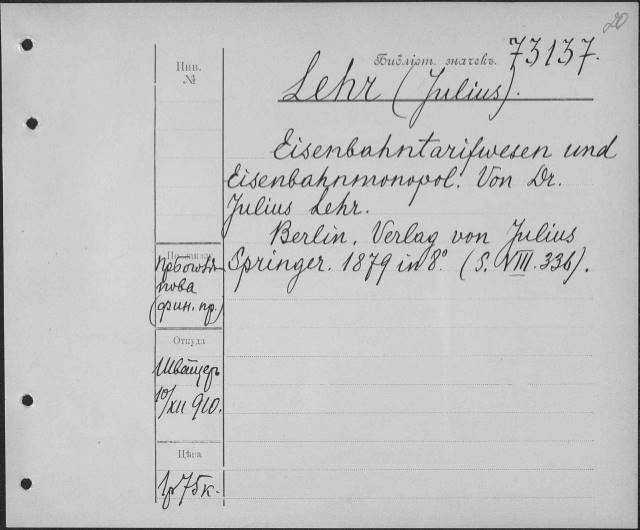 20
Библіот. значекъ. 73137.
Lehr (Julius).
Инв.
№
Eisenbahntarifwesen und
Eisenbahnmonopol. Von Dr.
Julius Lehr.
Berlin. Verlag von Julius
Springer. 1879 in 8º. (S. VIII. 336).
(фин. пр.)
Откуда
Швейцеръ
10/XII 910.
Цѣна
1р 75к.